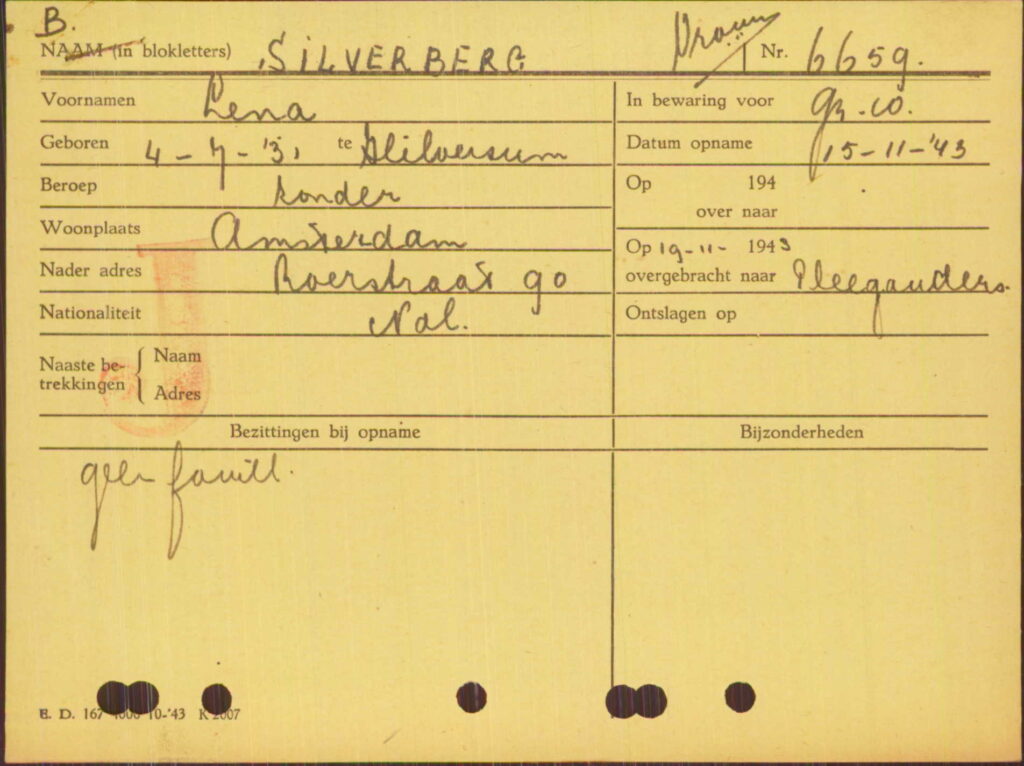 B.
NAAM (in blokletters) SILVERBERG Vrouw Nr. 6659.
Voornamen Lena In bewaring voor
Geboren 4-7-'31 te Hilversum Datum opname 15-11-'43
Beroep zonder Op 194
over naar
Woonplaats Amsterdam Op 19-11- 1943
Nader adres Roerstraat 90 overgebracht naar Pleegouders.
Nationaliteit Ned. Ontslagen op
Naaste be-
trekkingen { Naam
Adres
Bezittingen bij opname Bijzonderheden
geen
E. D. 167 4000 10-'43 K 2007
J